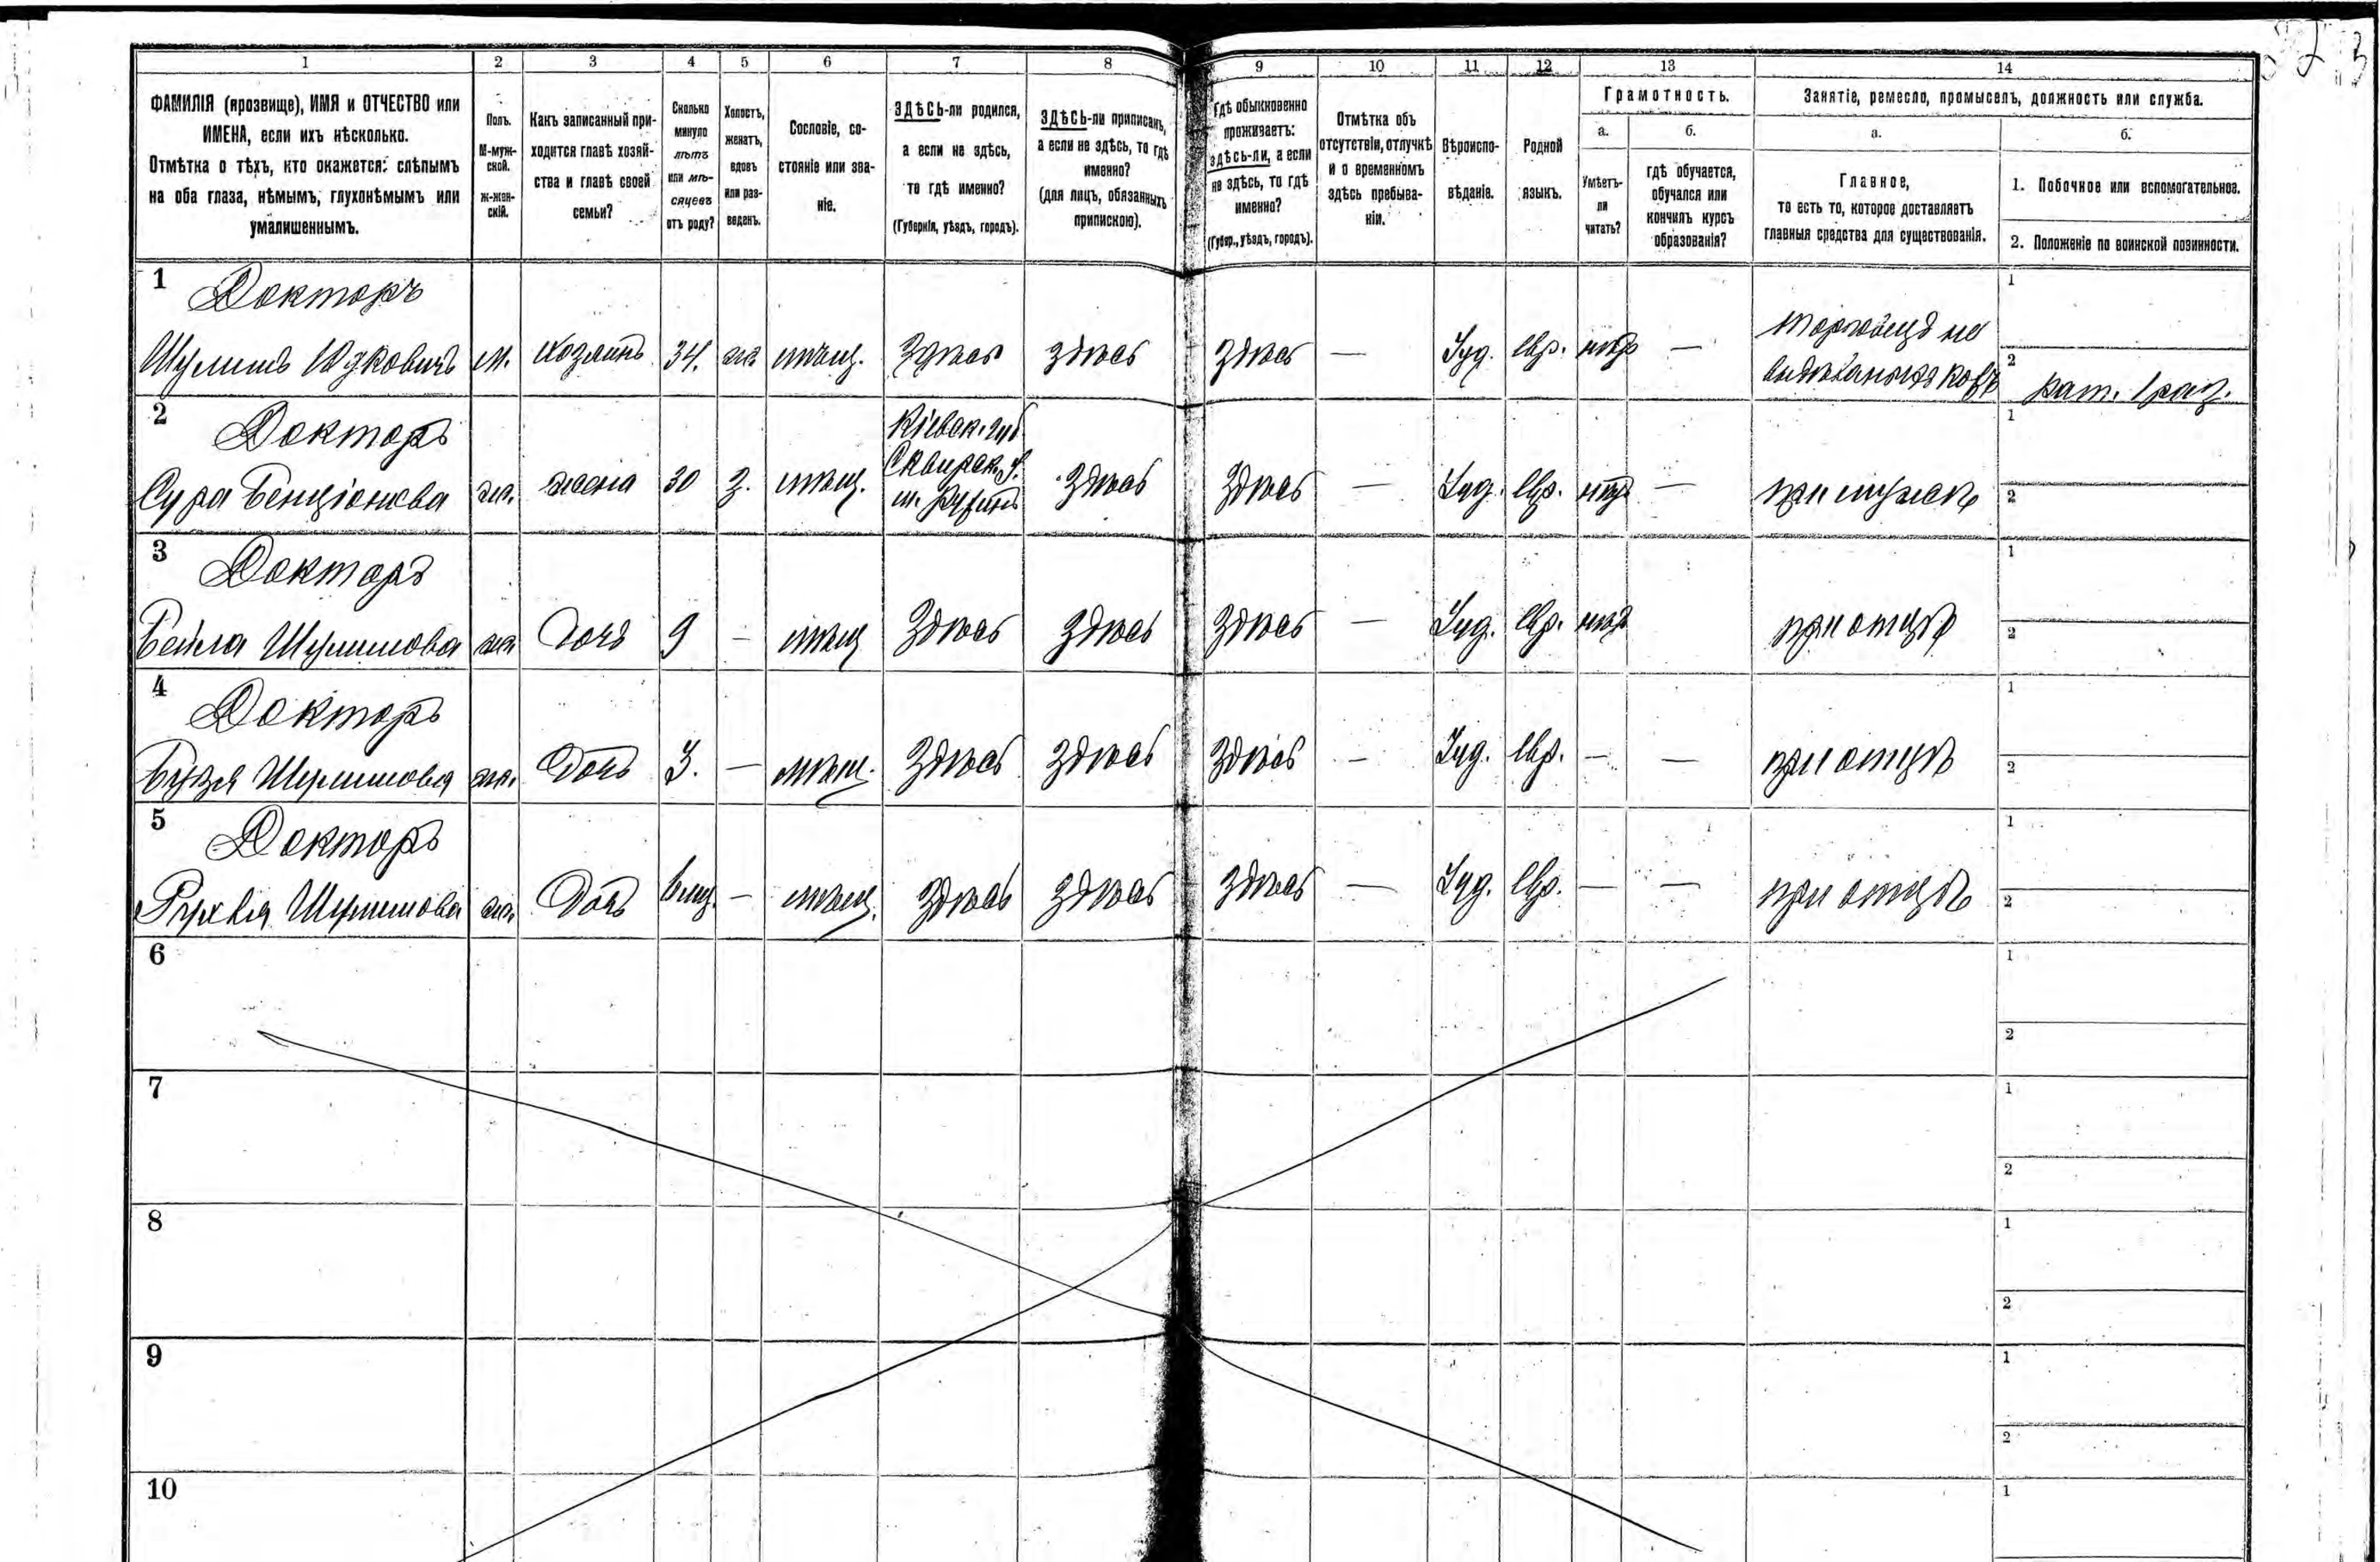 1 2 3 4 5 6 7 8 9 10 11 12 13 14
ФАМИЛІЯ (прозвище), ИМЯ и ОТЧЕСТВО или
ИМЕНА, если ихъ нѣсколько.
Отмѣтка о тѣхъ, кто окажется: слѣпымъ
на оба глаза, нѣмымъ, глухонѣмымъ или
умалишеннымъ.
Полъ.
М-муж-
ской.
ж-жен-
скій.
Какъ записанный при-
ходится главѣ хозяй-
ства и главѣ своей
семьи?
Сколько
минуло
лѣтъ
или мѣ-
сяцевъ
отъ роду?
Холостъ,
женатъ,
вдовъ
или раз-
веденъ.
Сословіе, со-
стояніе или зва-
ніе.
ЗДѢСЬ-ли родился,
а если не здѣсь,
то гдѣ именно?
(Губернія, уѣздъ, городъ).
ЗДѢСЬ-ли приписанъ,
а если не здѣсь, то гдѣ
именно?
(для лицъ, обязанныхъ
припискою).
Гдѣ обыкновенно
проживаетъ:
здѣсь-ли, а если
не здѣсь, то гдѣ
именно?
(Губер., уѣздъ, городъ).
Отмѣтка объ
отсутствіи, отлучкѣ
и о временномъ
здѣсь пребыва-
ніи.
Вѣроиспо-
вѣданіе.
Родной
языкъ.
Грамотность.
а.
Умѣетъ-
ли
читать?
б.
гдѣ обучается,
обучался или
кончилъ курсъ
образованія?
Занятіе, ремесло, промыселъ, должность или служба.
а.
Главное,
то есть то, которое доставляетъ
главныя средства для существованія.
б.
1. Побочное или вспомогательное.
2. Положеніе по воинской повинности.
1 Докторъ
Шулимъ Юзковичъ м. хозяинъ 34. ж. мѣщ. Здѣсь здѣсь здѣсь — Іуд. евр. нѣтъ —
торговецъ
1
2 рат. 1 раз.
2 Докторъ
Сура Бенціонова ж. жена 30 з. мѣщ.
Кіевск. губ.
Сквирск. у.
м. Ружинъ
здѣсь здѣсь — Іуд. евр. нѣтъ — при мужѣ
1
2
3 Докторъ
Бейла Шулимова ж. дочь 9 — мѣщ здѣсь здѣсь здѣсь — Іуд. евр. нѣтъ при отцѣ
1
2
4 Докторъ
Бузя Шулимова ж. дочь 3. — мѣщ. здѣсь здѣсь здѣсь — Іуд. евр. — — при отцѣ
1
2
5 Докторъ
Рухля Шулимова ж. дочь 6 мц. — мѣщ. здѣсь здѣсь здѣсь — Іуд. евр. — — при отцѣ
1
2
6
1
2
7
1
2
8
1
2
9
1
2
10
1